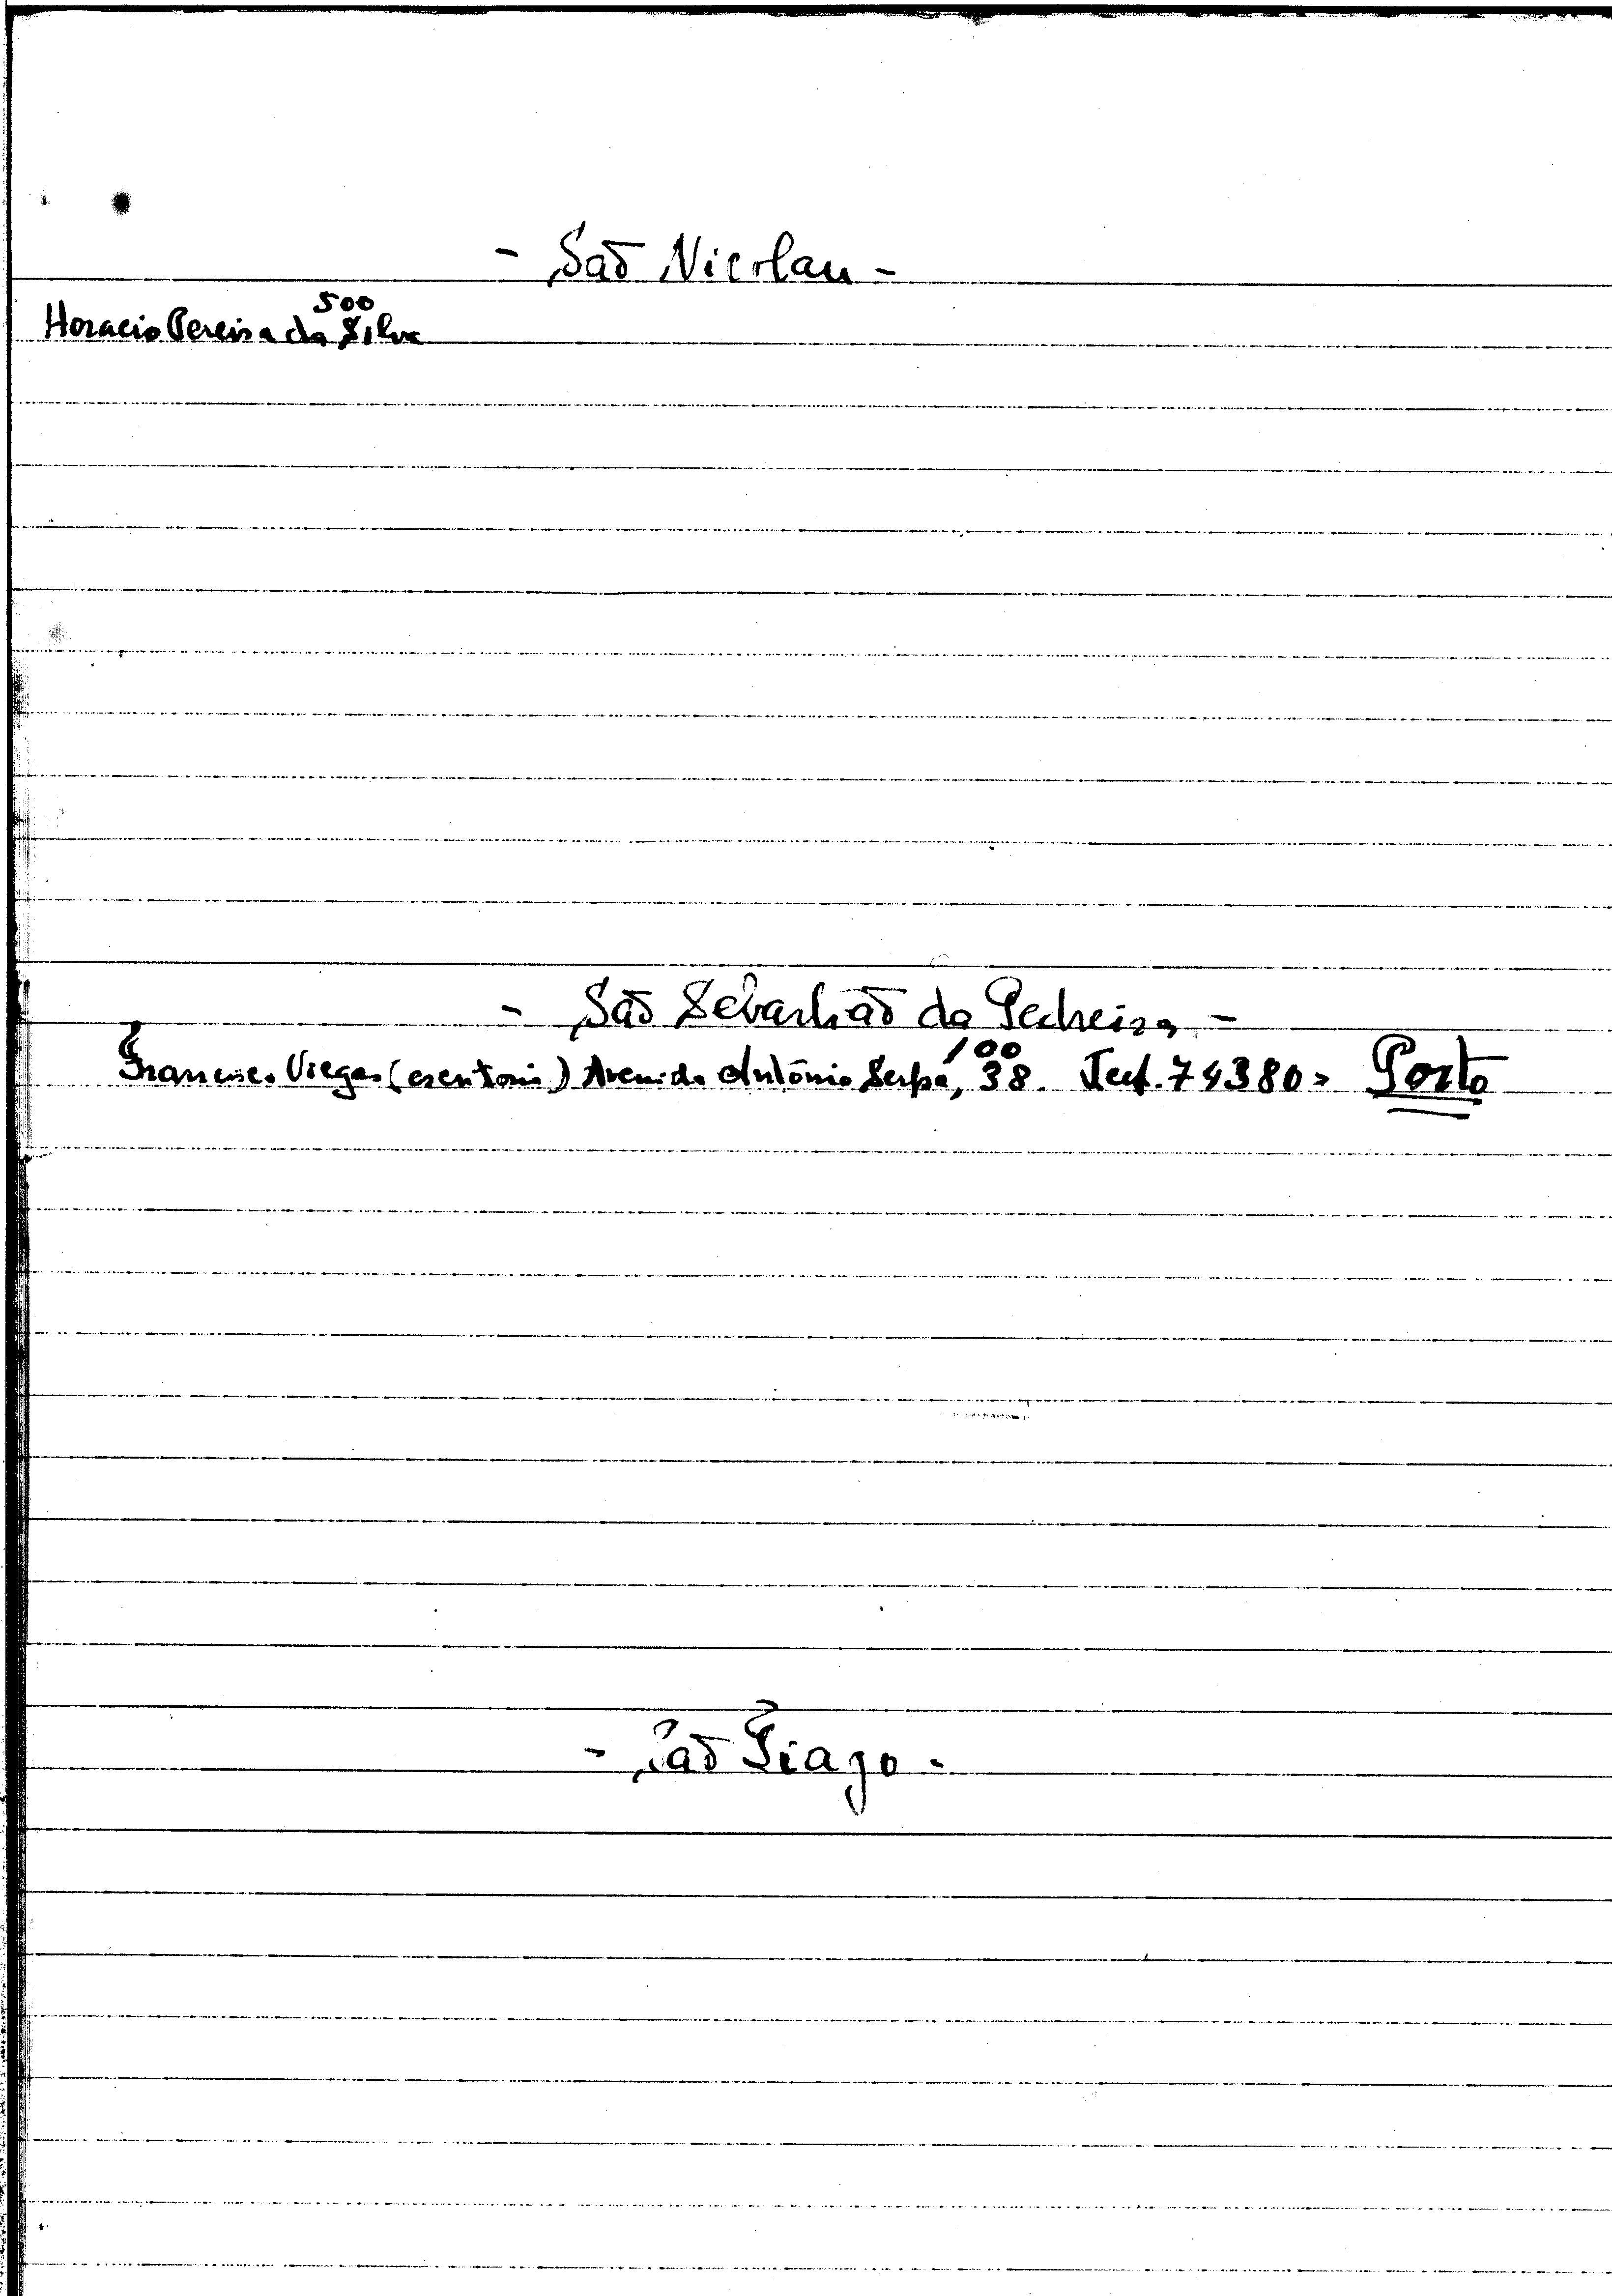 - São Nicolau -
500
Horacio Pereira da Silva
- São Sebastião da Pedreira -
100
Francisco Viegas (escritorio) Avenida António Serpa, 38. Telf. 74380 - Porto
- São Tiago -